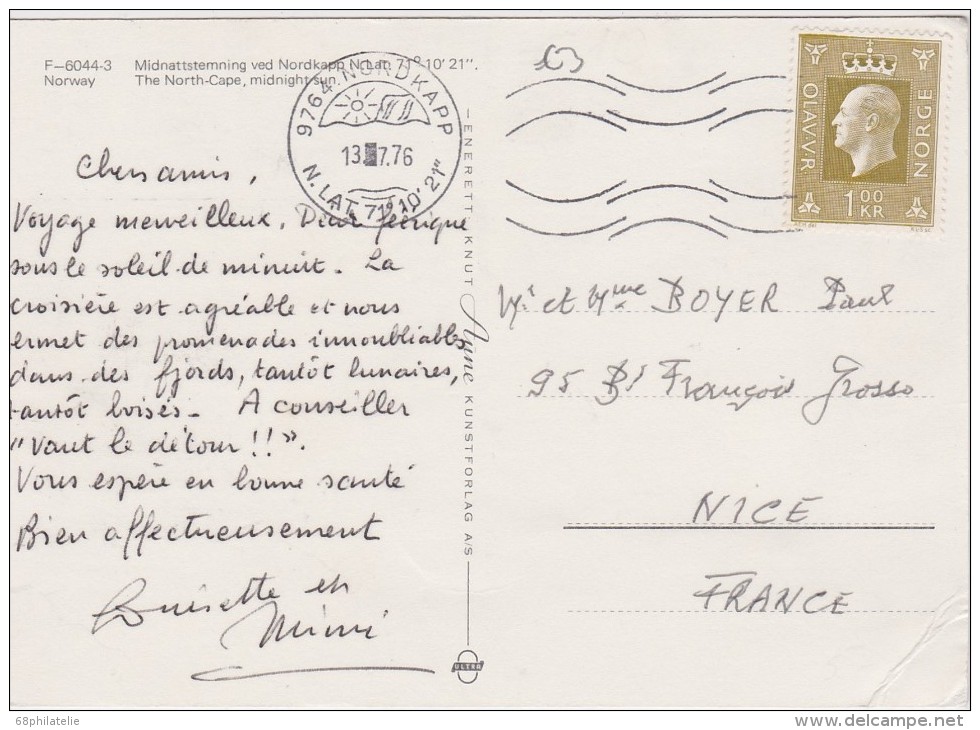 F—6044-3 Midnattstemning ved Nordkapp N.Lat. 71° 10' 21".
Norway The North-Cape, midnight sun.
9764 NORDKAPP
13. 7.76
N. LAT. 71° 10' 21"
63
OLAV.V.R
NORGE
1 00 KR
Chers amis,
Voyage merveilleux. Décor féérique
sous le soleil de minuit. La
croisière est agréable et nous
ermet des promenades innoubliables
dans des fjords, tantôt lunaires,
tantôt boisés. A conseiller
"Vaut le détour!!".
Vous espère en bonne santé
Bien affectueusement
Louisette et
Mimi
ENERETT KNUT Aune KUNSTFORLAG A/S
ULTRA
Mr et Mme BOYER Paul
95 Bd François Grosso
NICE
FRANCE
68philatelie
www.delcampe.net